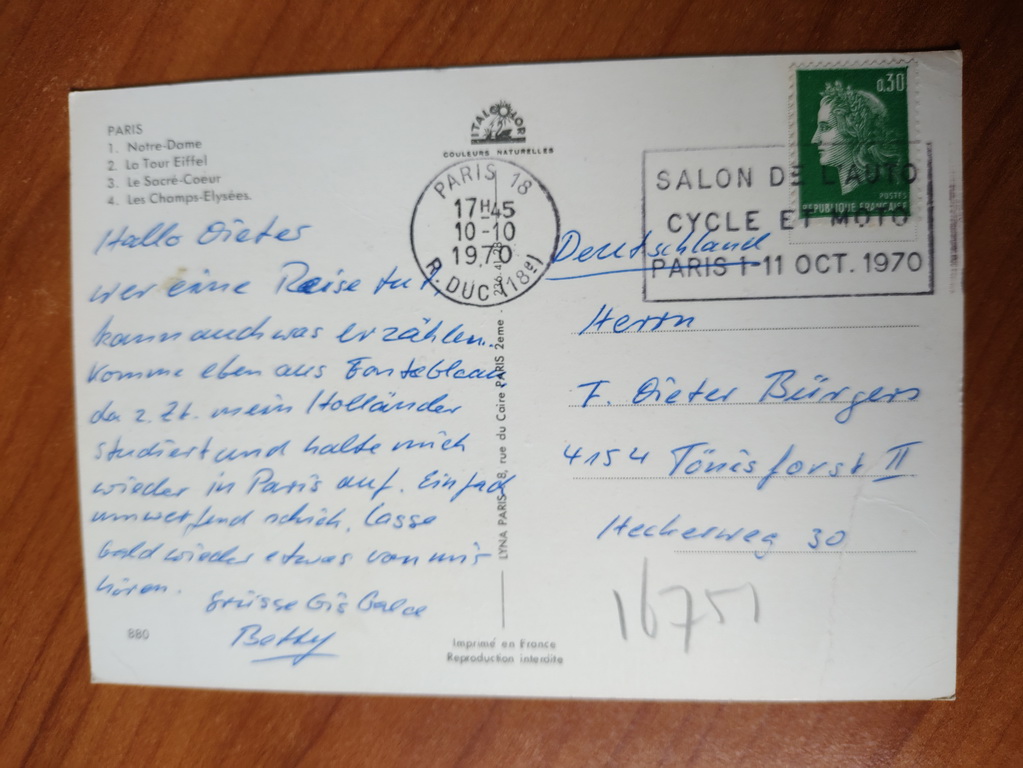 PARIS
1. Notre-Dame
2. La Tour Eiffel
3. Le Sacré-Coeur
4. Les Champs-Elysées.
ITALCOLOR
COULEURS NATURELLES
PARIS 18
17H45
10-10
1970
R. DUC (18e)
0,30
POSTES
REPUBLIQUE FRANCAISE
SALON DE L'AUTO
CYCLE ET MOTO
PARIS 1-11 OCT. 1970
Hallo Dieter
wer eine Reise tut,
kann auch was erzählen.
Komme eben aus Fontebleau,
da z. Zt. mein Holländer
studiert und halte mich
wieder in Paris auf. Einfach
umwerfend schick. Lasse
bald wieder etwas von mir
hören.
Grüsse bis balde
Betty
880
LYNA PARIS-8, rue du Caire PARIS 2eme - 236.41.28
Imprimé en France
Reproduction interdite
Deutschland
Herrn
F. Dieter Bürgers
4154 Tönisforst II
Heckerweg 30
16751